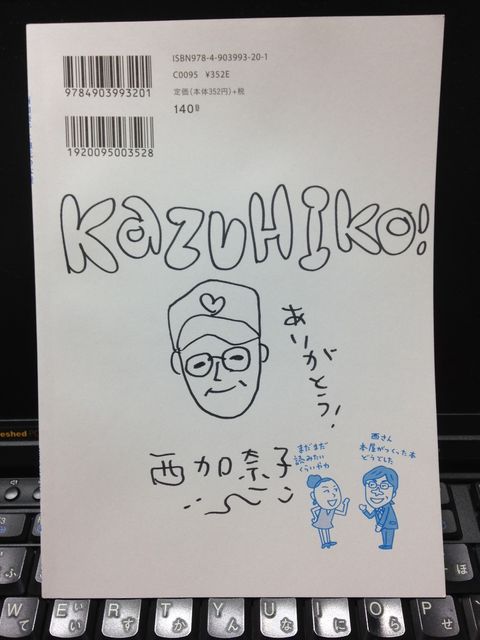 ISBN978-4-903993-20-1
C0095 ¥352E
定価(本体352円)+税
140B
9784903993201
1920095003528
KaZUHIKO!
ありがとう!
西加奈子
西さん
本屋がつくった本
どうでした
まだまだ
読みたい
ぐらいやわ
eshed PC
W E R T Y U I O P
い す か ん な に ら せ
ふ
ほ